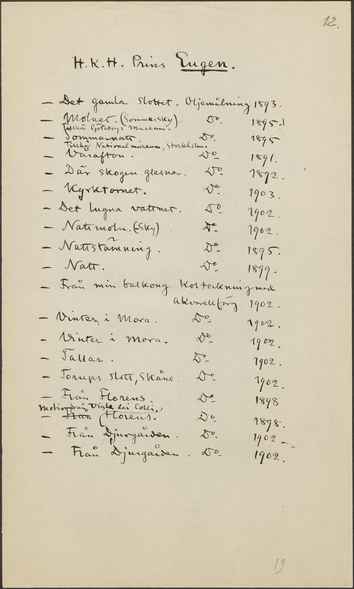 12.
H. K. H. Prins Eugen.
— Det gamla Slottet. Oljemålning 1893.
— Molnet. (Sommarsky) Do. 1895.
Tillhör Göteborgs Museum.
— Sommarnatt Do. 1895
Tillhör National museum, Stockholm.
— Vårafton. Do. 1891.
— Där skogen glesnar. Do. 1892.
— Kyrktornet. Do. 1903.
— Det lugna vattnet. Do. 1902.
— Nattmoln. (Sky) Do. 1902.
— Nattstämning. Do. 1895.
— Natt. Do. 1899.
— Från min balkong Kolteckning med
akvarellfärg 1902.
— Vinter i Mora. Do. 1902.
— Vinter i Mora. Do. 1902.
— Tallar. Do. 1902.
— Torups slott, Skåne. Do. 1902.
— Från Florens. Do. 1898
Motiv från Viale dei Colli,
— Från (Florens. Do. 1898.
— Från Djurgården. Do. 1902 –
— Från Djurgården. Do. 1902.
19